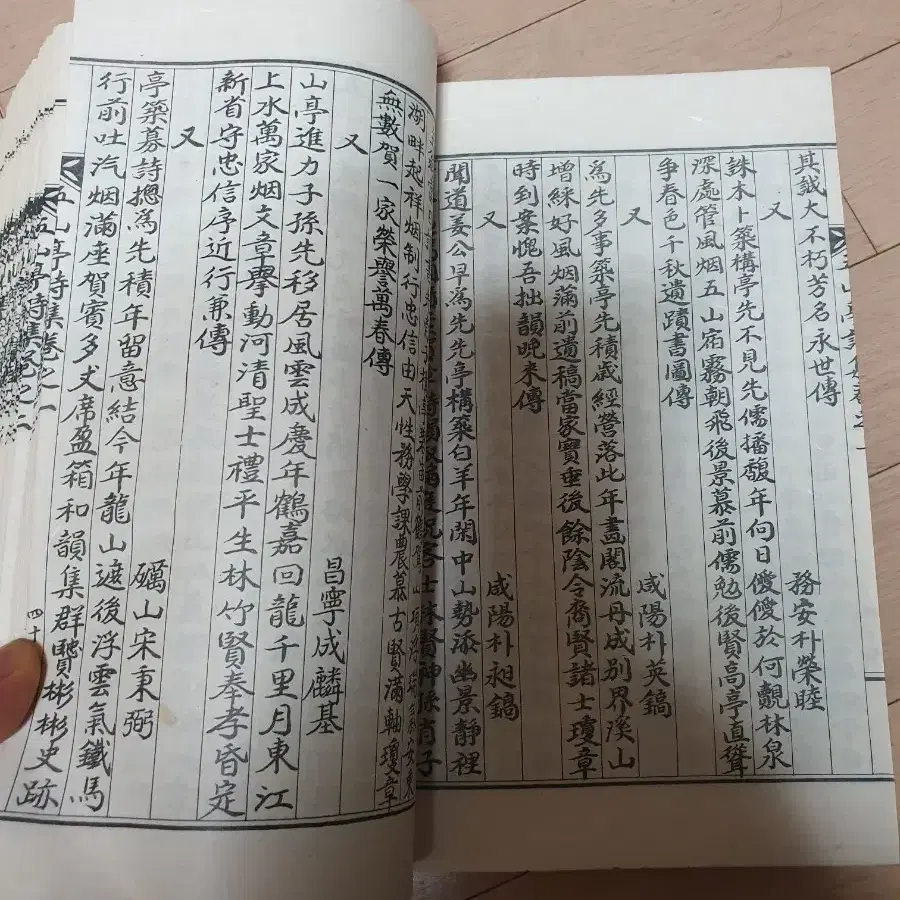 其誠大不朽芳名永世傳
又
務安朴榮睦
誅木卜築構亭先不見先儒播馥年何日僾僾於何覩林泉
深處管風烟五山宿霧朝飛後景慕前儒勉後賢高亭直聳
爭春色千秋遺蹟書圖傳
又
咸陽朴英鎬
爲先多事築亭先積歲經營落此年畵閣流丹成別界溪山
增綵好風烟滿前遺稿當家寶垂後餘陰令裔賢諸士瓊章
時到案愧吾拙韻晩來傳
又
咸陽朴昶鎬
聞道姜公早爲先先亭構築白羊年閑中山勢添幽景靜裡
湖畔起祥烟制行忠信由天性務學課農慕古賢滿軸瓊章
無數賀一家榮譽萬春傳
又
昌寧成麟基
山亭進力子孫先移居風雲成慶年鶴嘉回龍千里月東江
上水萬家烟文章擧動河淸聖士禮平生林竹賢奉孝昏定
新省守忠信序近行兼傳
又
礪山宋秉弼
亭築募詩摠爲先積年留意結今年龍山遮後浮雲氣鐵馬
行前吐汽烟滿座賀賓多丈席盈箱和韻集群賢彬彬史跡
五山亭詩集卷之一
四十